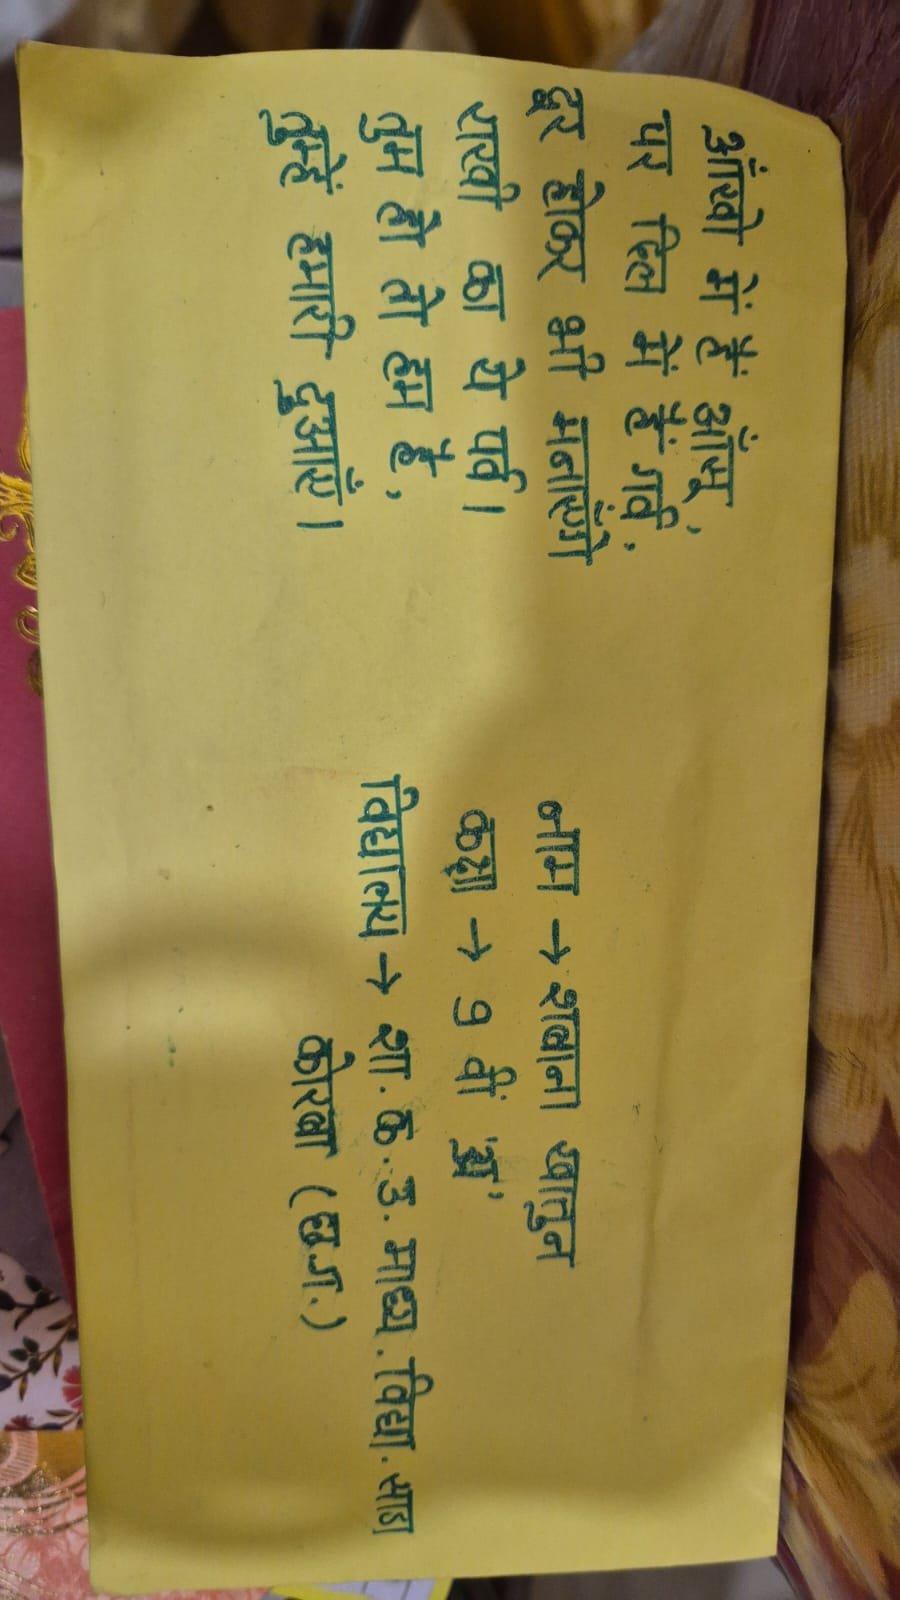 आँखो में हैं आँसू,
पर दिल में हैं गर्व,
दूर होकर भी मनाएंगे
राखी का ये पर्व।
तुम हो तो हम है,
तुम्हें हमारी दुआएं।
नाम → शबाना खातुन
कक्षा → 9 वीं 'अ'
विद्यालय → शा. क. उ. माध्य. विद्या. साडा
कोरबा (छ.ग.)